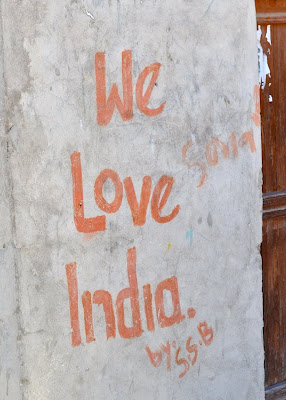 We
Love
India.
by: S.S.B